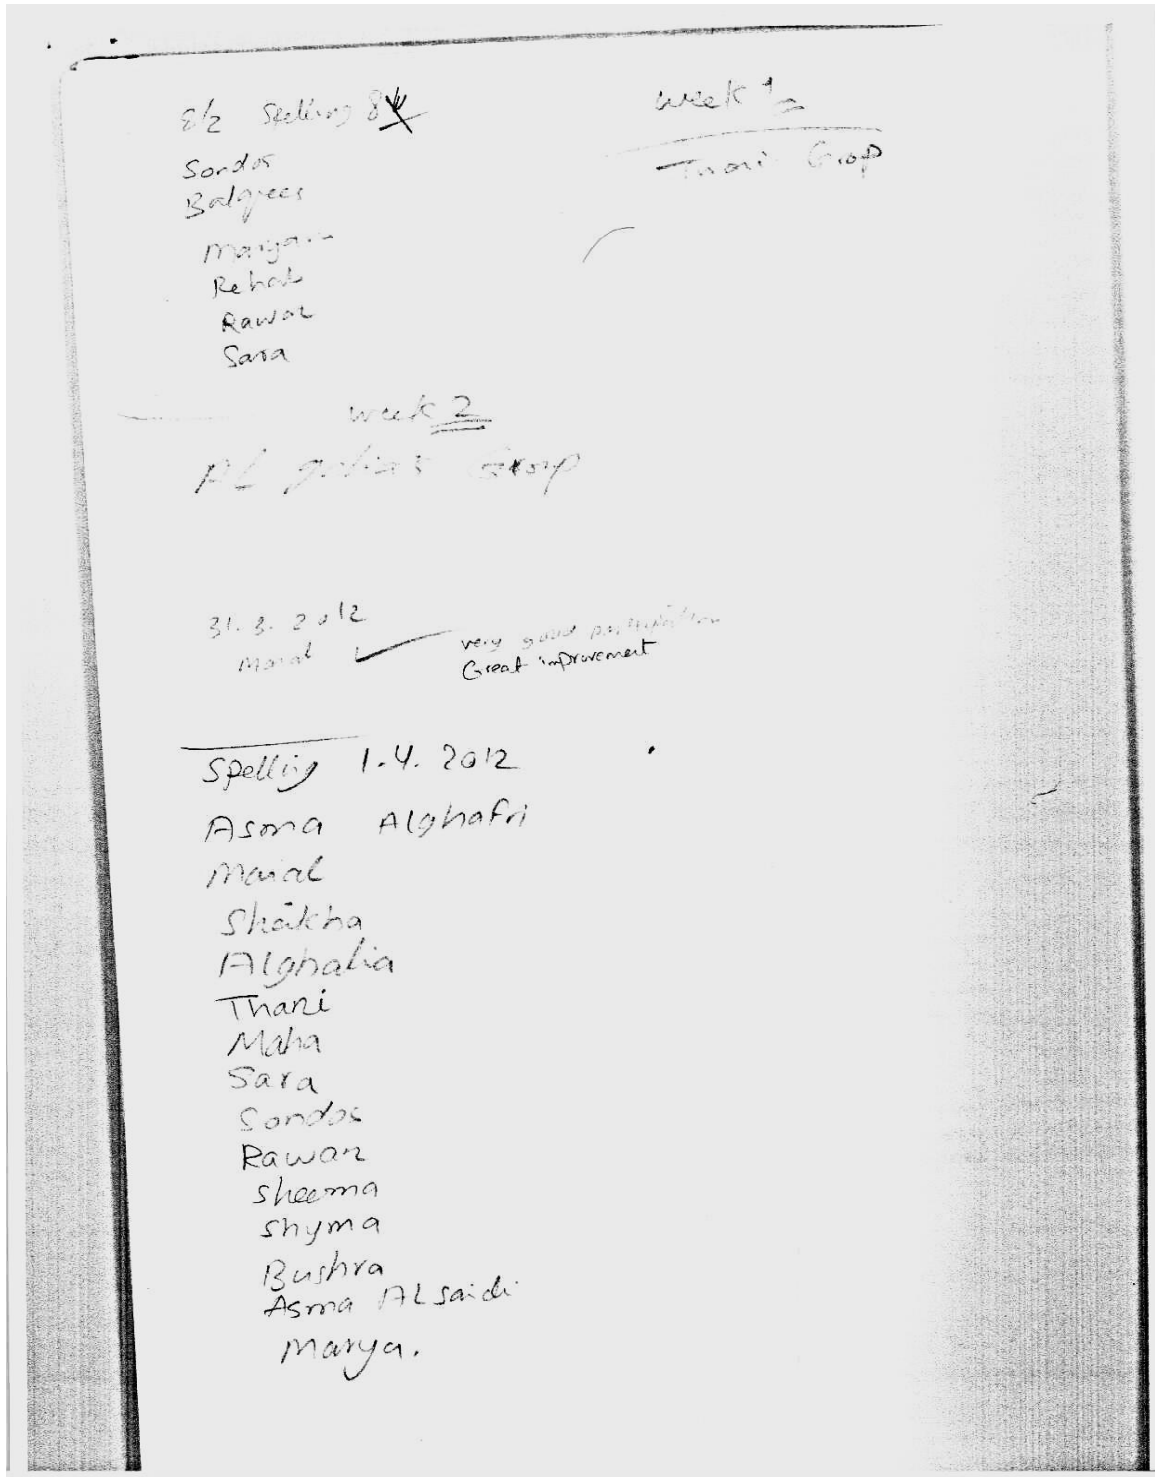 8/2 Spelling 8
Week 1
Thani Grop
Sondos
Balqees
Maryam
Rehab
Rawan
Sara
week 2
AL galia's Group
31.3.2012
Manal
very good participation
Great improvement
Spelling 1.4.2012
Asma Alghafri
Manal
Shaikha
Alghalia
Thani
Maha
Sara
Sondos
Rawan
Sheema
Shyma
Bushra
Asma ALsaidi
Marya.